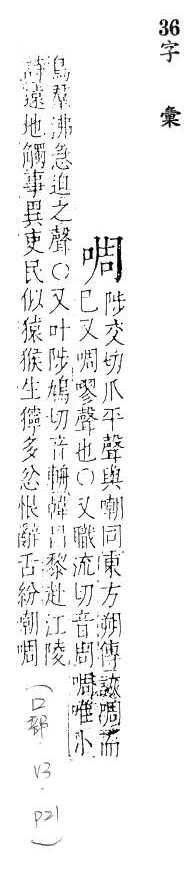 36字　彙
啁陟交切爪平聲與嘲同東方朔傳詼啁而
已又啁嘐聲也○又職流切音周啁唯小
鳥羣沸急迫之聲○又叶陟鳩切音輈韓昌黎赴江陵
詩遠地觸事異吏民似猿猴生獰多忿恨辭舌紛嘲啁
（口部．V3．P21）